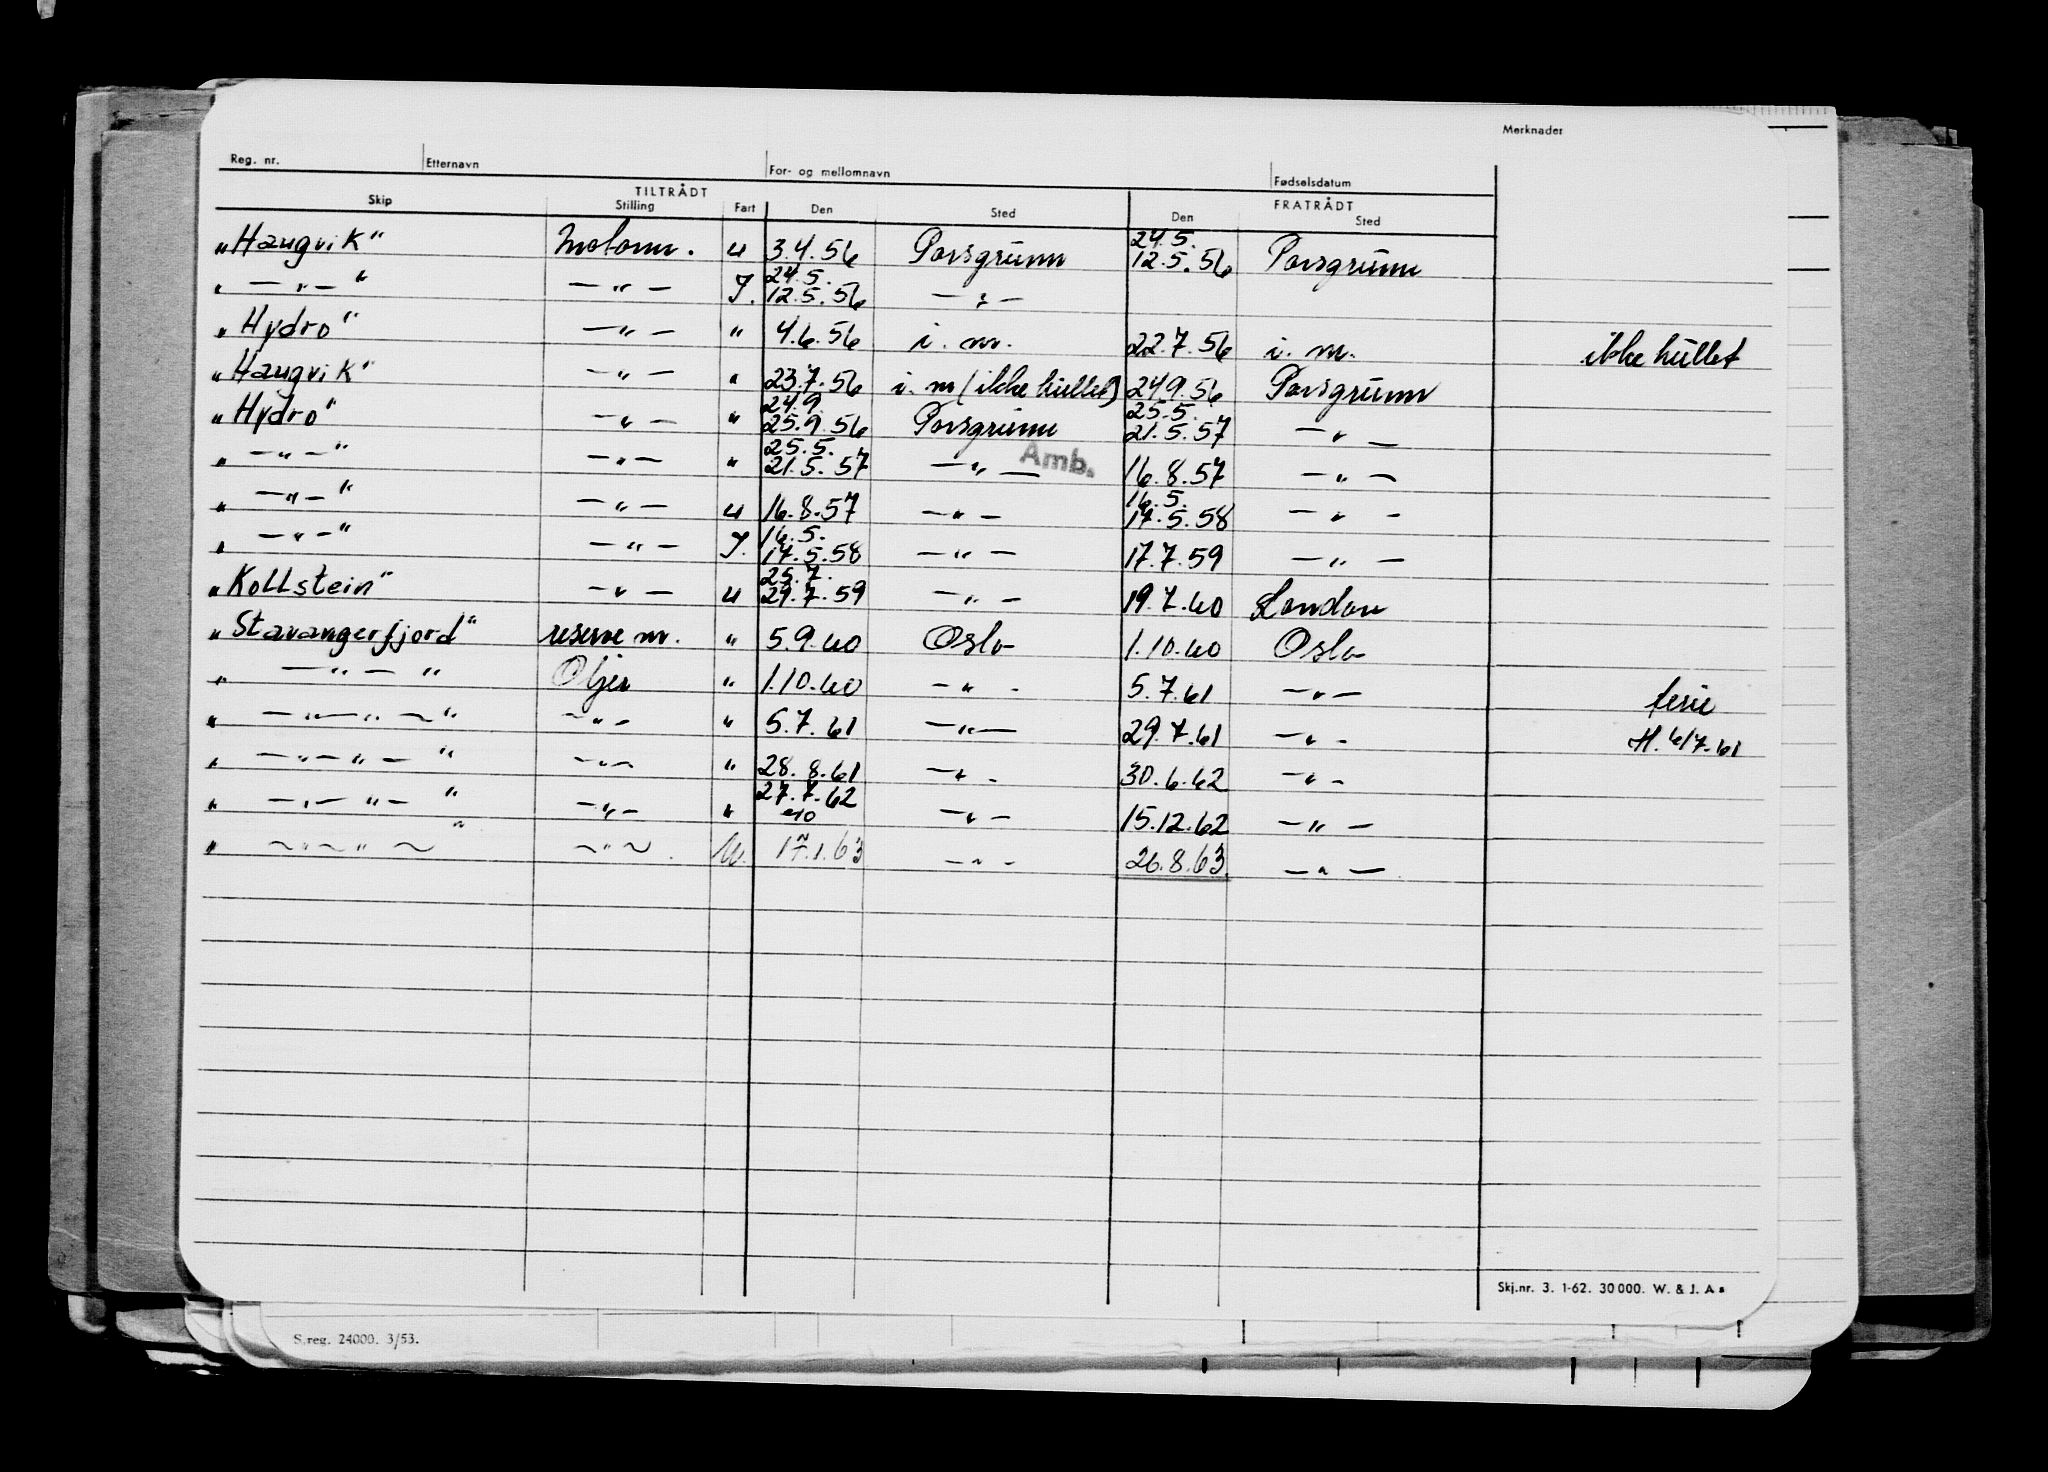 Merknader
Reg. nr. Etternavn For- og mellomnavn Fødselsdatum
TILTRÅDT FRATRÅDT
Skip Stilling Fart Den Sted Den Sted
"Haugvik" Motorm. u 24.5. 3.4.56 Porsgrunn 12.5.56 Porsgrunn
" — " — " — " — J. 24.5. 12.5.56 — " —
"Hydro" — " — " 4.6.56 i. m. 22.7.56 i. m. ikke hullet
"Haugvik" — " — " 23.7.56 i. m (ikke hullet) 24.9.56 Porsgrunn
"Hydro" — " — " 24.9. 25.9.56 Porsgrunn 25.5. 21.5.57 — " —
" — " — " — " — " 25.5. 21.5.57 — " — Amb. 16.8.57 — " —
" — " — " — " — u 16.8.57 — " — 16.5. 17.5.58 — " —
" — " — " — " — J. 16.5. 17.5.58 — " — 17.7.59 — " —
"Kollstein" — " — u 25.7. 29.7.59 — " — 19.7.60 London
"Stavangerfjord" reserve m. " 5.9.60 Oslo 1.10.60 Oslo
" — " — " Oljer " 1.10.60 — " — 5.7.61 — " — ferie
" — " — " — " — " — " 5.7.61 — " — 29.7.61 — " — H. 6/7-61
" — " — " — " — " — " 28.8.61 — " — 30.6.62 — " —
" — " — " — " — " — " 27.7.62 — " — 15.12.62 — " —
" — " — " — " — " — U. 17.1.63 — " — 26.8.63 — " —
Skj.nr. 3. 1-62. 30000. W. & J. A s
S.reg. 24000. 3/53.